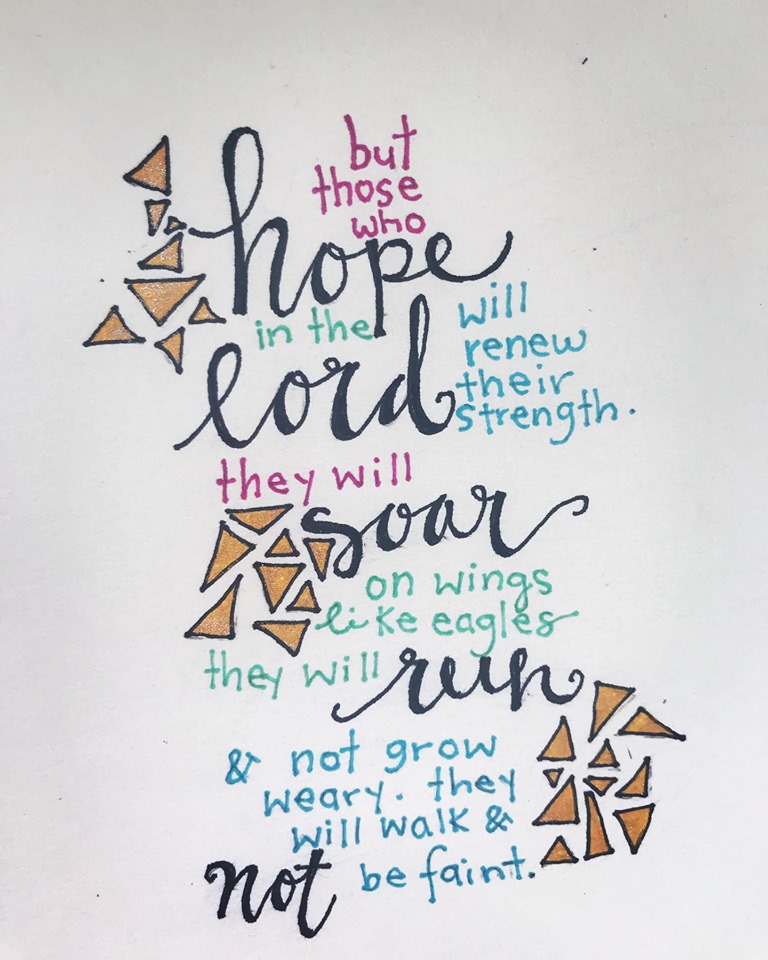 but
those
who
hope
in the
lord
will
renew
their
strength.
they will
soar
on wings
like eagles
they will run
& not grow
weary. they
will walk &
not be faint.